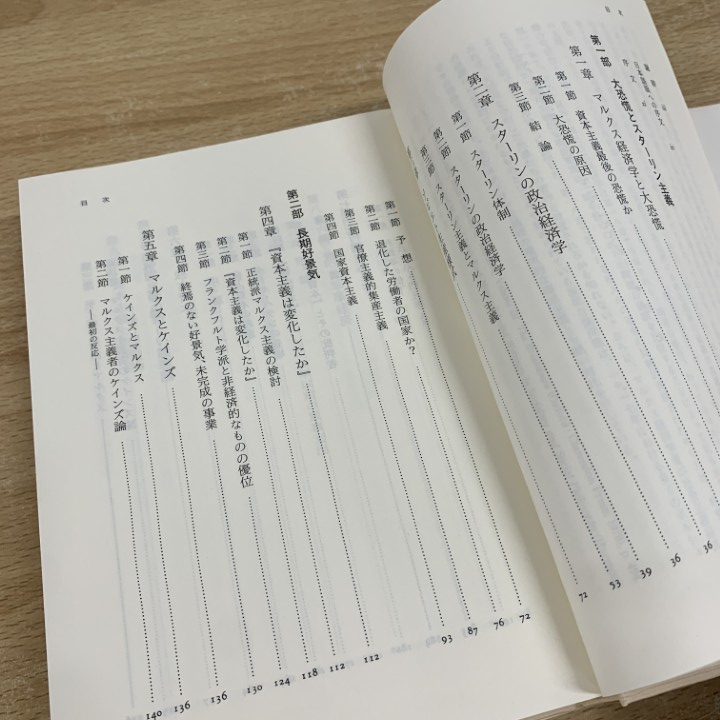 目次
序文
第一部 大恐慌とスターリン主義
第一章 マルクス経済学と大恐慌 36
第一節 資本主義最後の恐慌か 36
第二節 大恐慌の原因 39
第三節 結論 53
第二章 スターリンの政治経済学 72
第一節 スターリン体制
第二節 スターリンの政治経済学
第三節 スターリン主義とマルクス主義
目次
第一節 予想 72
第二節 退化した労働者の国家か? 76
第三節 官僚主義的集産主義 87
第四節 国家資本主義 93
第二部 長期好景気
第四章 『資本主義は変化したか』 112
第一節 正統派マルクス主義の検討 112
第二節 『資本主義は変化したか』 118
第三節 フランクフルト学派と非経済的なものの優位 124
第四節 終焉のない好景気、未完成の事業 130
第五章 マルクスとケインズ 136
第一節 ケインズとマルクス 136
第二節 マルクス主義者のケインズ論 140
――最初の反応――